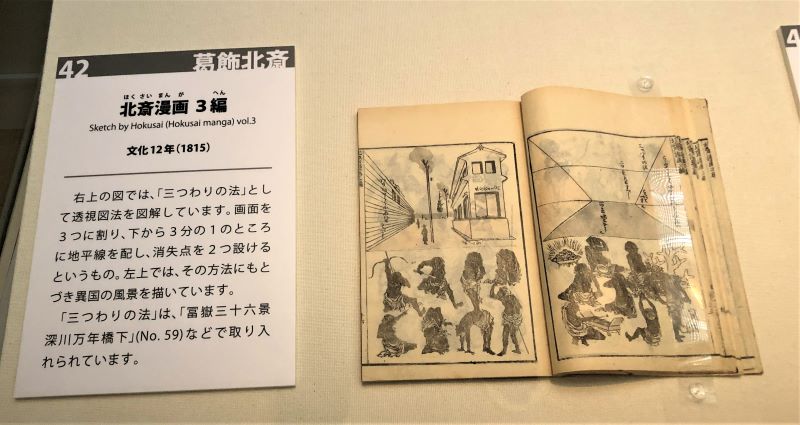 42
葛飾北斎
ほくさいまんが へん
北斎漫画 3編
Sketch by Hokusai (Hokusai manga) vol.3
文化12年(1815)
右上の図では、「三つわりの法」とし
て透視図法を図解しています。画面を
3つに割り、下から3分の1のところ
に地平線を配し、消失点を2つ設ける
というもの。左上では、その方法にもと
づき異国の風景を描いています。
「三つわりの法」は、「冨嶽三十六景
深川万年橋下」(No. 59)などで取り入
れられています。
4